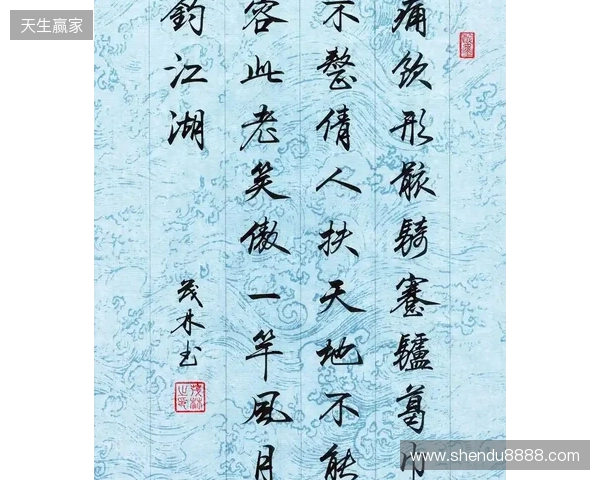 天生赢家
痛飲形骸騎蹇驢葛巾
不整倩人扶天地不能
容此老笑傲一竿風月
釣江湖
茂林书
www.shendu8888.com